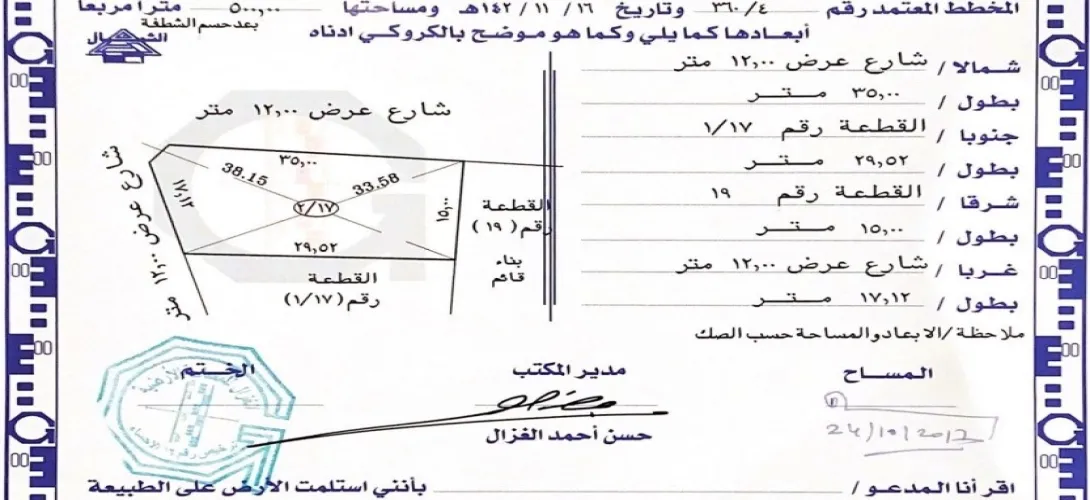 المخطط المعتمد رقم ٣٦٠/٤ وتاريخ ١٦ / ١١ / ١٤٢هـ ومساحتها ٥٠٠,٠٠ متراً مربعاً
بعد حسم الشطفة
أبعادها كما يلي وكما هو موضح بالكروكي ادناه
الشمال
شمالا / شارع عرض ١٢,٠٠ متر
بطول / ٣٥,٠٠ متر
جنوبا / القطعة رقم ١/١٧
بطول / ٢٩,٥٢ متر
شرقا / القطعة رقم ١٩
بطول / ١٥,٠٠ متر
غربا / شارع عرض ١٢,٠٠ متر
بطول / ١٧,١٢ متر
ملاحظة /الابعاد والمساحة حسب الصك
شارع عرض ١٢,٠٠ متر
٣٥,٠٠
شارع عرض ١٢,٠٠ متر
١٧,١٢
38.15
33.58
٢/١٧
١٥,٠٠
٢٩,٥٢
القطعة
رقم( ١٩ )
بناء
قائم
القطعة
رقم(١/١٧)
المساح
مدير المكتب
الختم
24/10/2012
حسن أحمد الغزال
اقر أنا المدعو / بأنني استلمت الأرض على الطبيعة